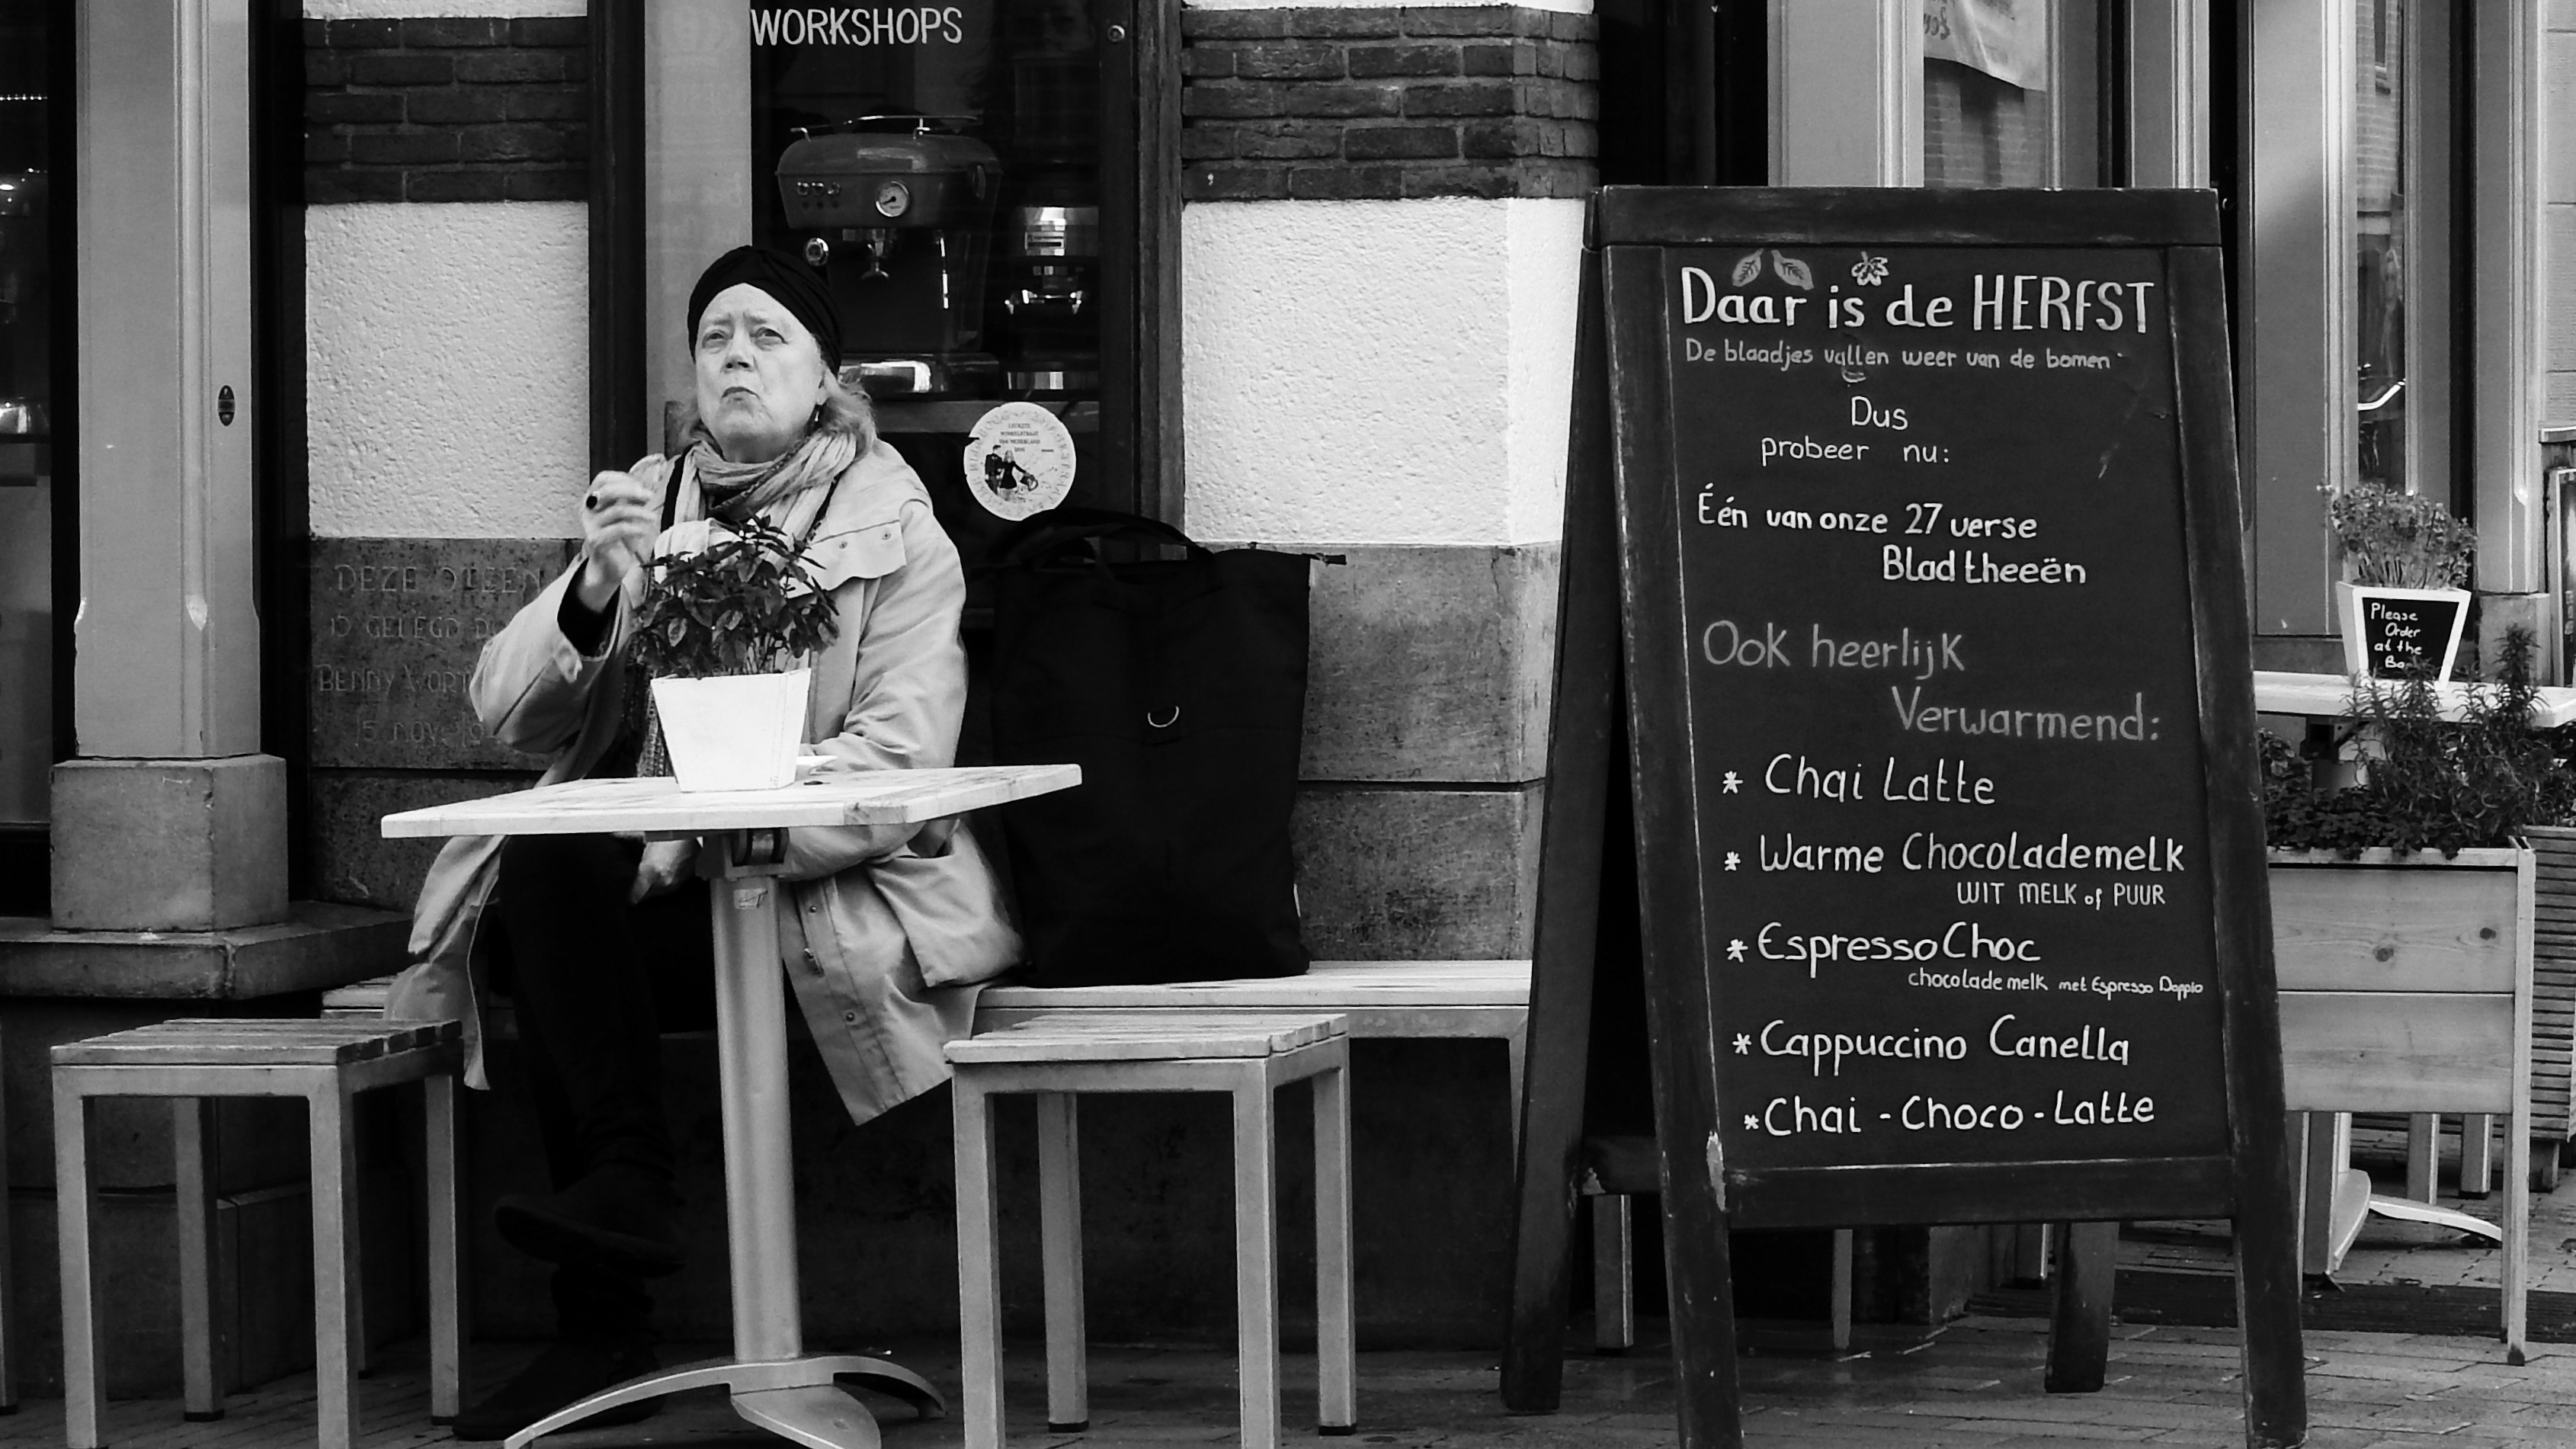 WORKSHOPS
DEZE STEEN
IS GELEGD DO
BENNY VORT
15 NOV. 19
LEUKSTE
WINKELSTRAAT
VAN NEDERLAND
Daar is de HERFST
De blaadjes vallen weer van de bomen
Dus
probeer nu:
Één van onze 27 verse
Blad theeën
Ook heerlijk
Verwarmend:
* Chai Latte
* Warme Chocolademelk
WIT MELK of PUUR
* EspressoChoc
chocolade melk met Espresso Doppio
* Cappuccino Canella
* Chai - Choco - Latte
Please
Order
at the
Bar